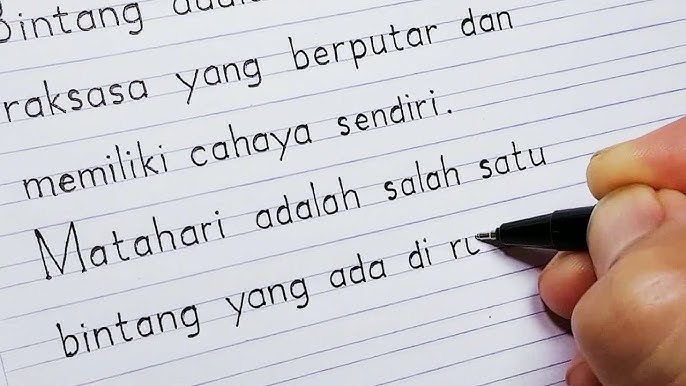 Bintang
raksasa yang berputar dan
memiliki cahaya sendiri.
Matahari adalah salah satu
bintang yang ada di